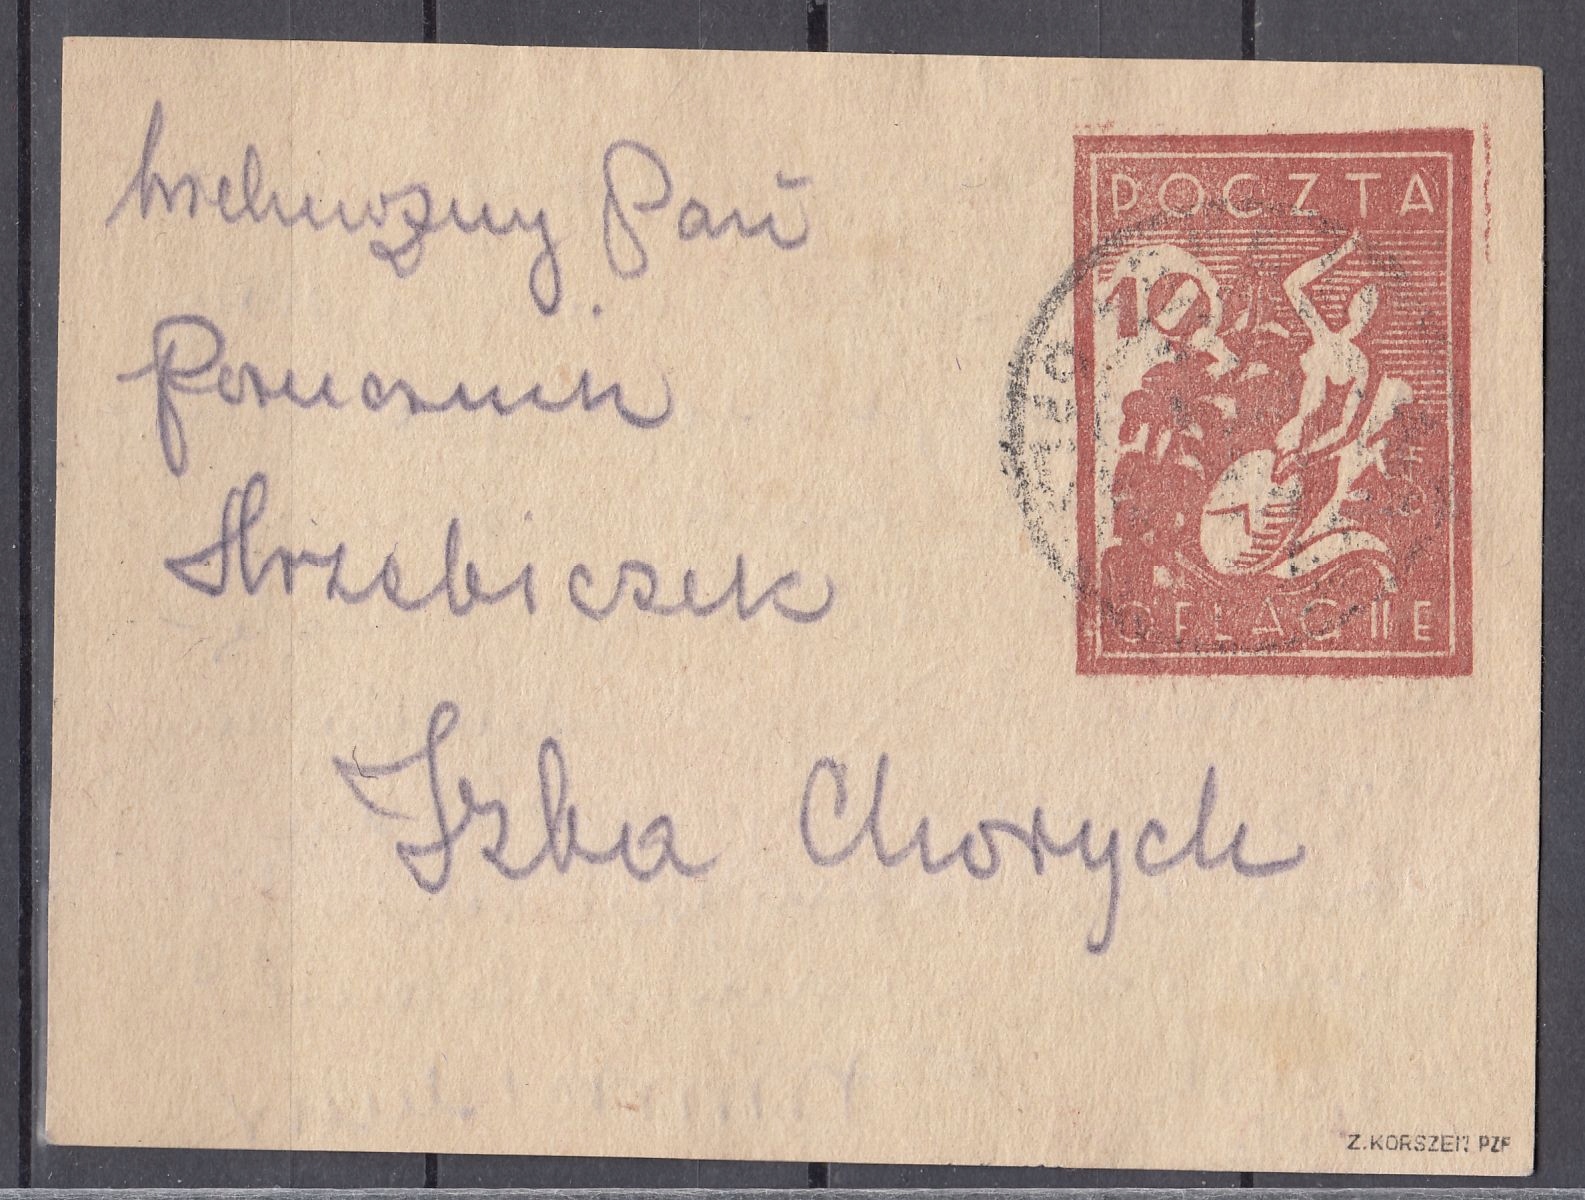 Wielmożny Pan
Porucznik
Hrzebiczek
Izba Chorych
POCZTA
10
OFLAG II E
Z.KORSZEŃ PZF